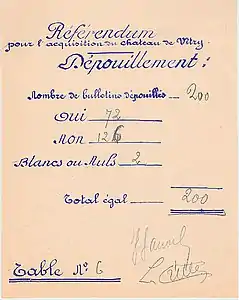 Référendum
pour l'acquisition du château de Vitry.
Dépouillement :
Nombre de bulletins dépouillés 200
Oui 72
Non 126
Blancs ou Nuls 2
Total égal 200
Table N° 6